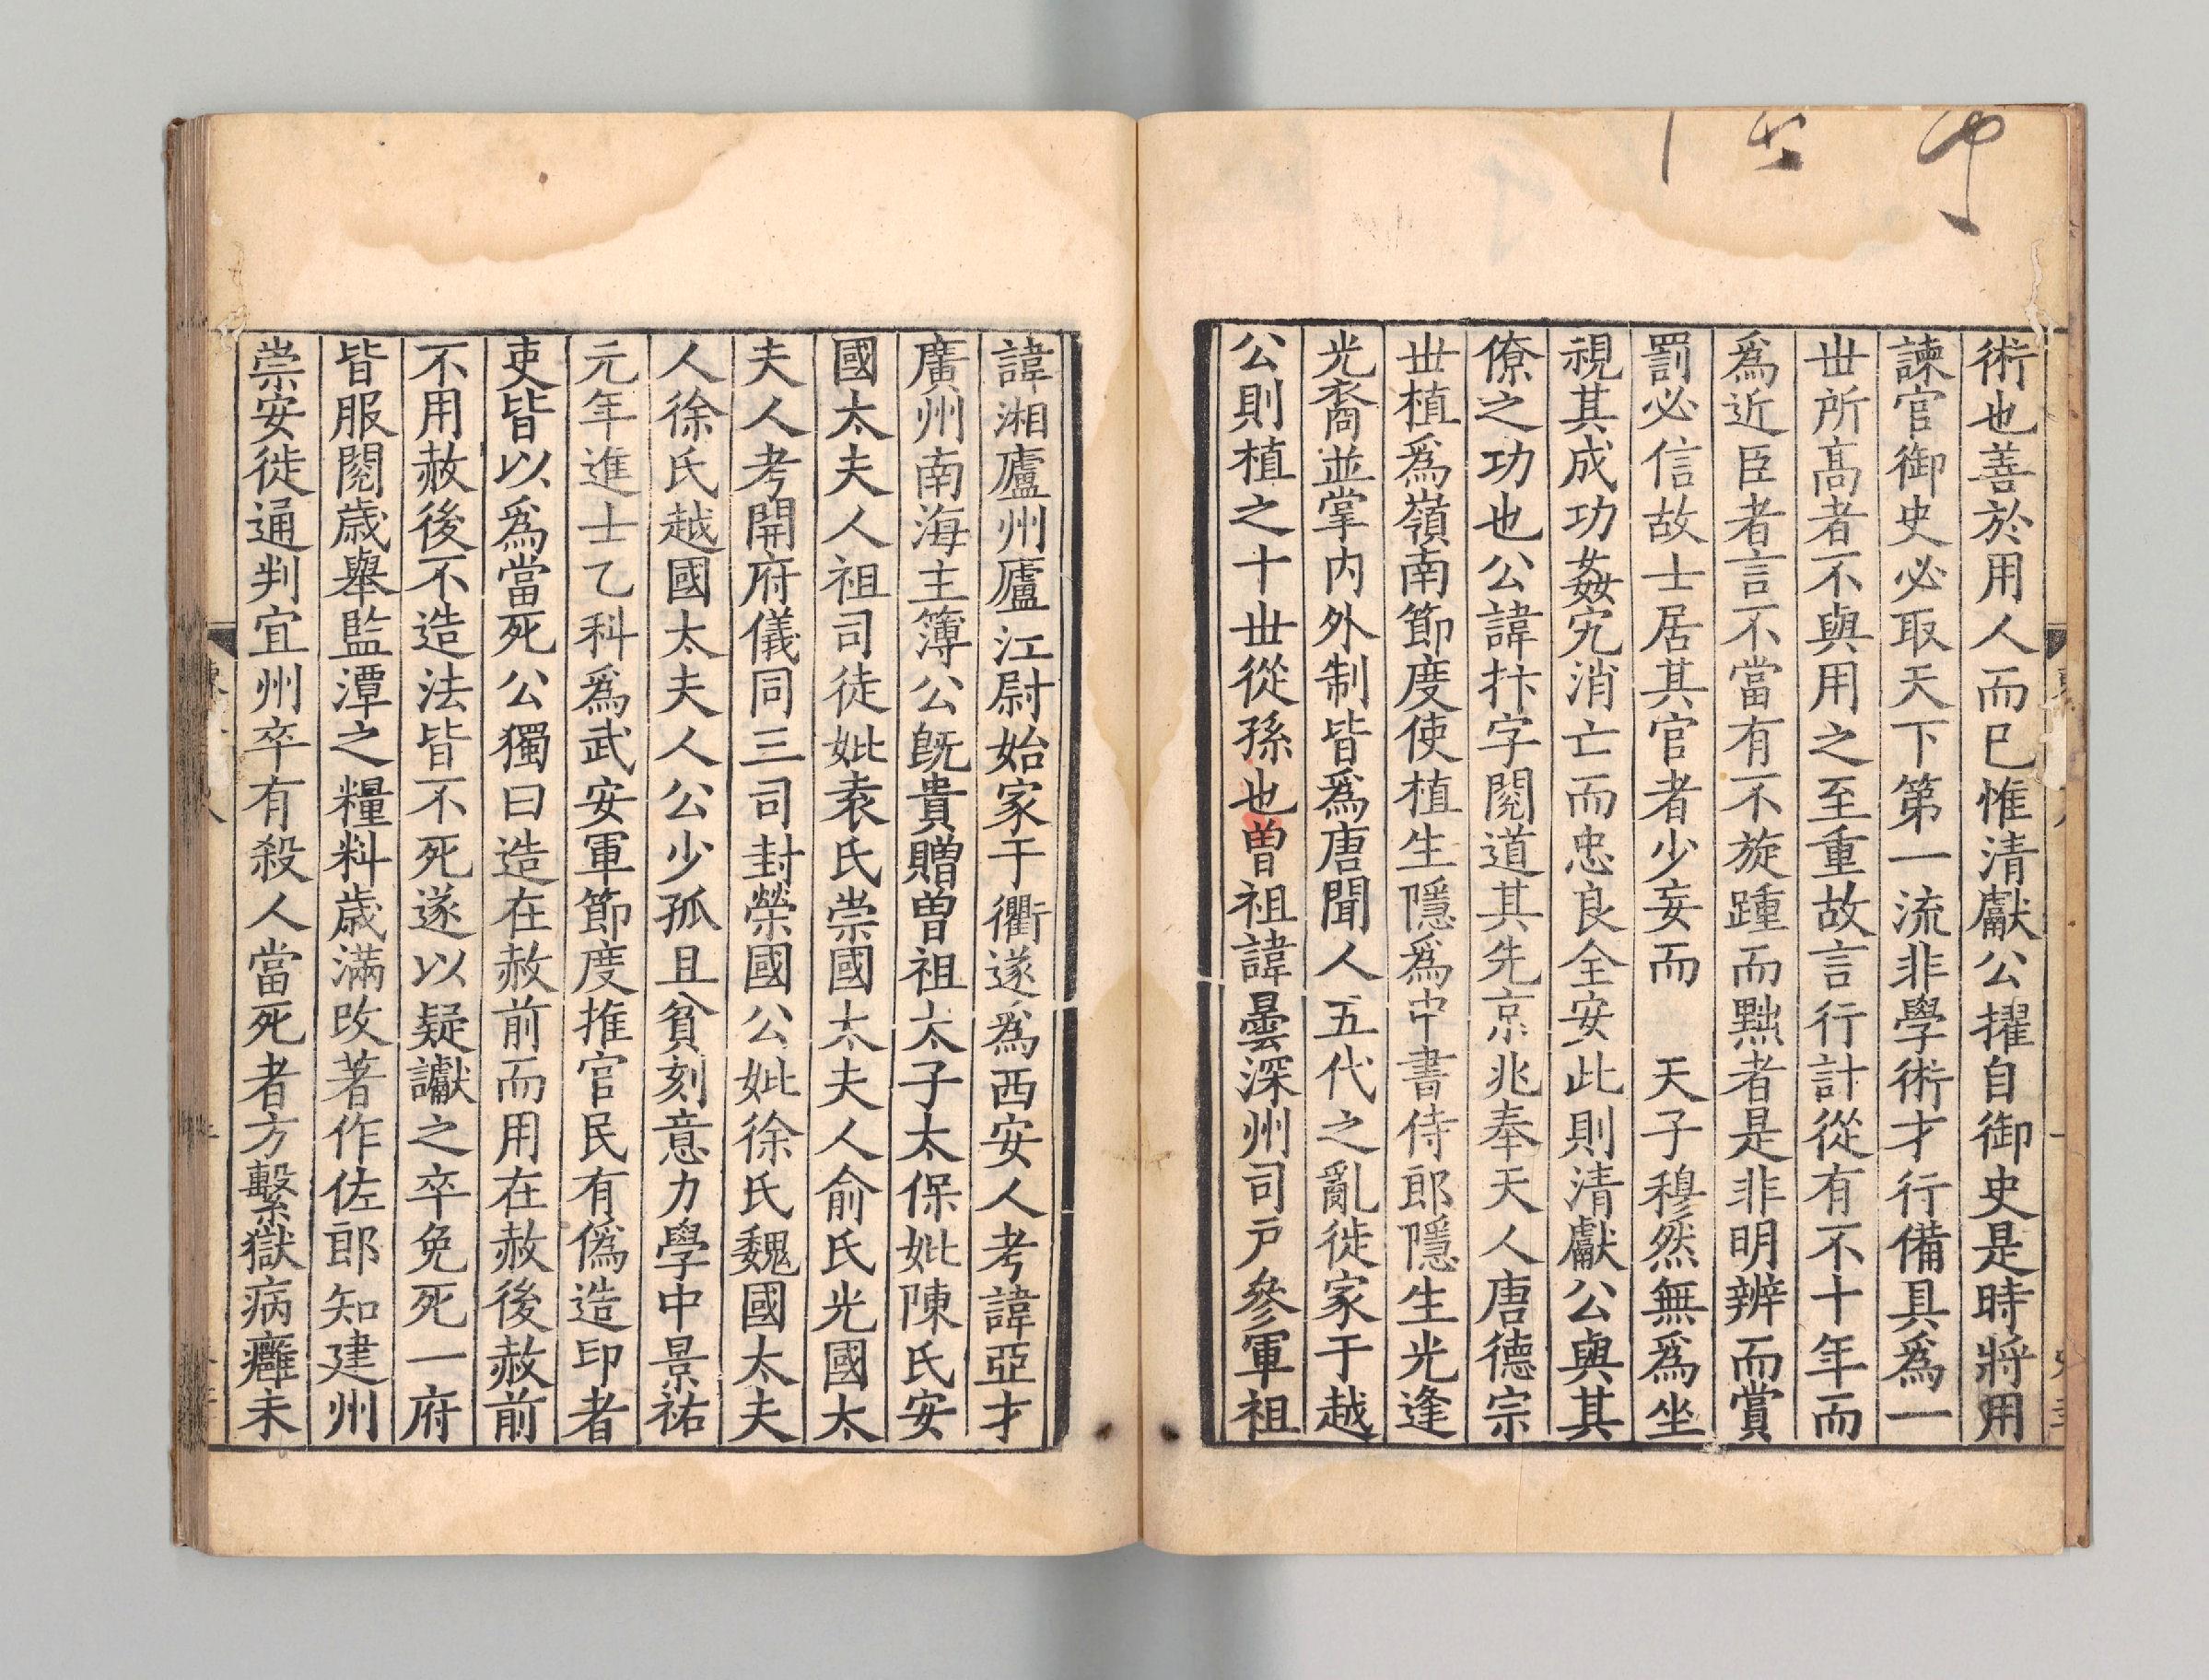 術也善於用人而已惟清獻公擢自御史是時將用
諫官御史必取天下第一流非學術才行備具爲一
丗所高者不與用之至重故言行計從有不十年而
爲近臣者言不當有不旋踵而黜者是非明辨而賞
罰必信故士居其官者少妄而　天子穆然無爲坐
視其成功姦宄消亡而忠良全安此則清獻公與其
僚之功也公諱抃字閱道其先京兆奉天人唐德宗
丗植爲嶺南節度使植生隱爲中書侍郎隱生光逢
光裔並掌内外制皆爲唐聞人五代之亂徙家于越
公則植之十丗從孫也曽祖諱曇深州司戸參軍祖
諱湘廬州廬江尉始家于衢遂爲西安人考諱亞才
廣州南海主簿公旣貴贈曽祖太子太保妣陳氏安
國太夫人祖司徒妣袁氏崇國太夫人俞氏光國太
夫人考開府儀同三司封榮國公妣徐氏魏國太夫
人徐氏越國太夫人公少孤且貧刻意力學中景祐
元年進士乙科爲武安軍節度推官民有僞造印者
吏皆以爲當死公獨曰造在赦前而用在赦後赦前
不用赦後不造法皆不死遂以疑讞之卒免死一府
皆服閱歳舉監潭之糧料歳滿改著作佐郎知建州
崇安徙通判宜州卒有殺人當死者方繫獄病癰未